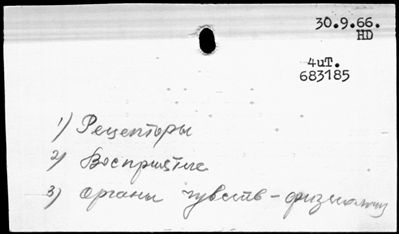 30.9.66.
HD
4uT.
683185
1) Рецепторы
2) Восприятие
3) Органы чувств - физиология